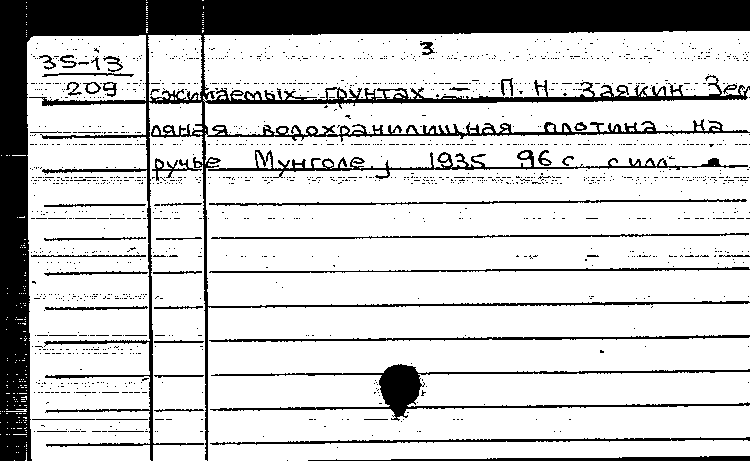 3
35-13
209
сжимаемых грунтах. — П. Н. Заякин Зем
ляная водохранилищная плотина на
ручье Мунголе, 1935 96 с. с илл.